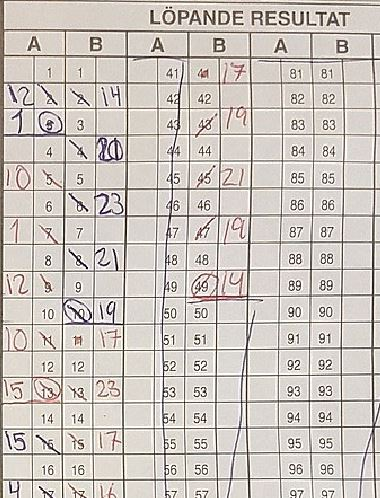 LÖPANDE RESULTAT
A B A B A B
1 1 41 41 17 81 81
12 2 2 14 42 42 82 82
1 3 3 43 43 19 83 83
4 4 44 44 84 84
10 5 5 45 45 21 85 85
6 6 23 46 46 86 86
1 7 7 47 47 19 87 87
8 8 21 48 48 88 88
12 9 9 49 49 14 89 89
10 10 19 50 50 90 90
10 11 11 17 51 51 91 91
12 12 52 52 92 92
15 13 13 23 53 53 93 93
14 14 54 54 94 94
15 15 15 17 55 55 95 95
16 16 56 56 96 96
4 17 17 16 57 57 97 97